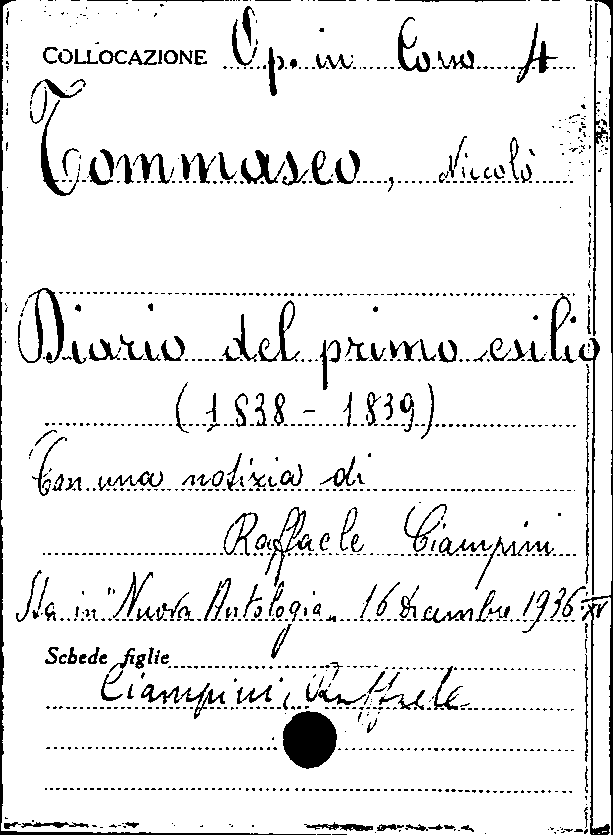 COLLOCAZIONE Op. in Corso 4
Tommaseo, Niccolò
Diario del primo esilio
(1838 - 1839)
Con una notizia di
Raffaele Ciampini
Sta in "Nuova Antologia" 16 dicembre 1936-XV
Schede figlie
Ciampini, Raffaele